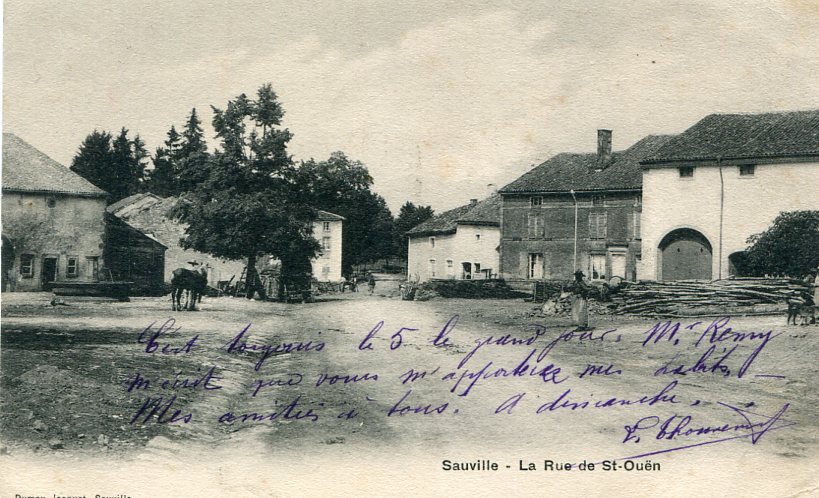 C'est toujours le 5 le grand jour. Mr. Remy
m'écrit que vous m'apporterez mes habits. —
Mes amitiés à tous. A dimanche. —
Sauville - La Rue de St-Ouën